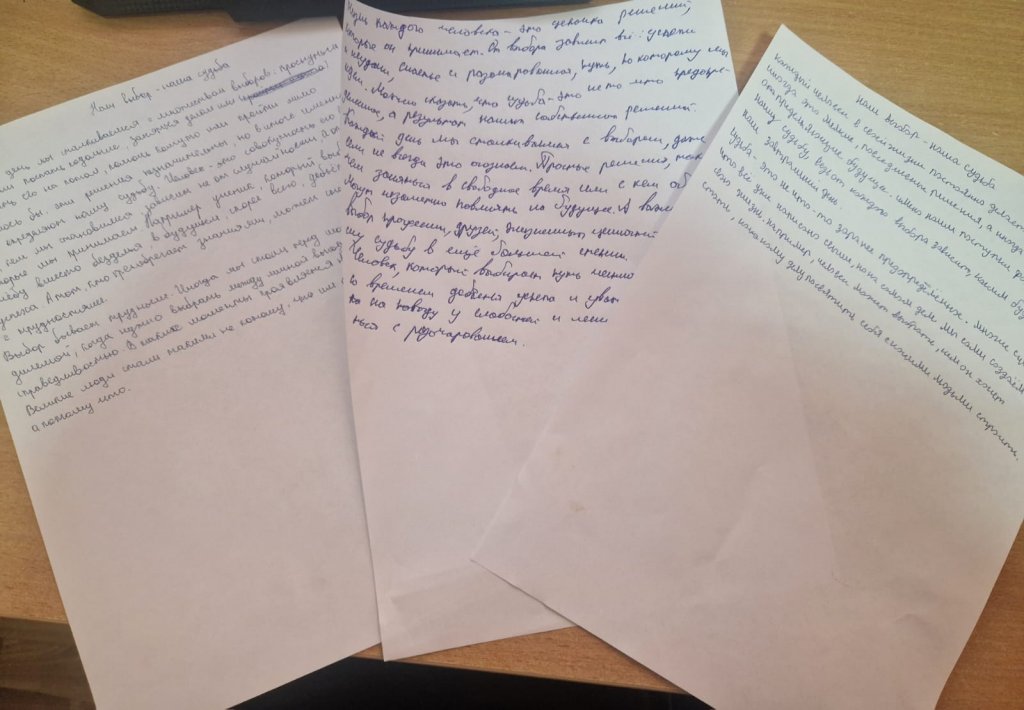 Наш выбор - наша судьба
день мы сталкиваемся с множеством выборов: проснуться
или поспать подольше, заняться делом или
его на потом, помочь кому-то или пройти мимо
лось бы, эти решения незначительны, но в итоге именно
определяют нашу судьбу. Человек - это совокупность его
тем, кем мы становимся зависит не от случайностей, а от
которые мы принимаем. Например ученик, который выб
учёбу вместо безделья, в будущем, скорее всего, добьёт
успеха. А тот, кто пренебрегает знаниями, может
с трудностями.
Выбор бывает трудным. Иногда мы стоим перед мо
дилемой, когда нужно выбрать между личной выгод
справедливостью. В такие моменты проявляется
Великие люди стали такими не потому, что им
а потому что.
Жизнь каждого человека - это цепочка решений,
которые он принимает. От выбора зависит всё: успехи
и неудачи, счастье и разочарования, путь, по которому мы
идём. Можно сказать, что судьба - это не то что предопре-
делено, а результат наших собственных решений.
Каждый день мы сталкиваемся с выбором, даже
если не всегда это осознаем. Простые решения, как
чем заняться в свободное время или с кем об
могут незаметно повлиять на будущее. А важн
выбор профессии, друзей, жизненных ценностей
шу судьбу в ещё большей степени.
Человек, который выбирает путь честно
со временем добьётся успеха и уваж
на поводу у слабостей и лени
ться с разочарованием.
Наш выбор - наша судьба
Каждый человек в своей жизни постоянно делает
иногда это мелкие, повседневные решения, а иногда
определяющие будущее. именно наши поступки
нашу судьбу, ведь от каждого выбора зависит, каким бу
наш завтрашний день.
Судьба - это не что-то заранее предопределённое. Многие сч
что всё уже написано свыше, но на самом деле мы сами создаём
свою жизнь. например, человек может выбрать, кем он хочет
стать, какому делу посвятить себя с какими людьми строить.